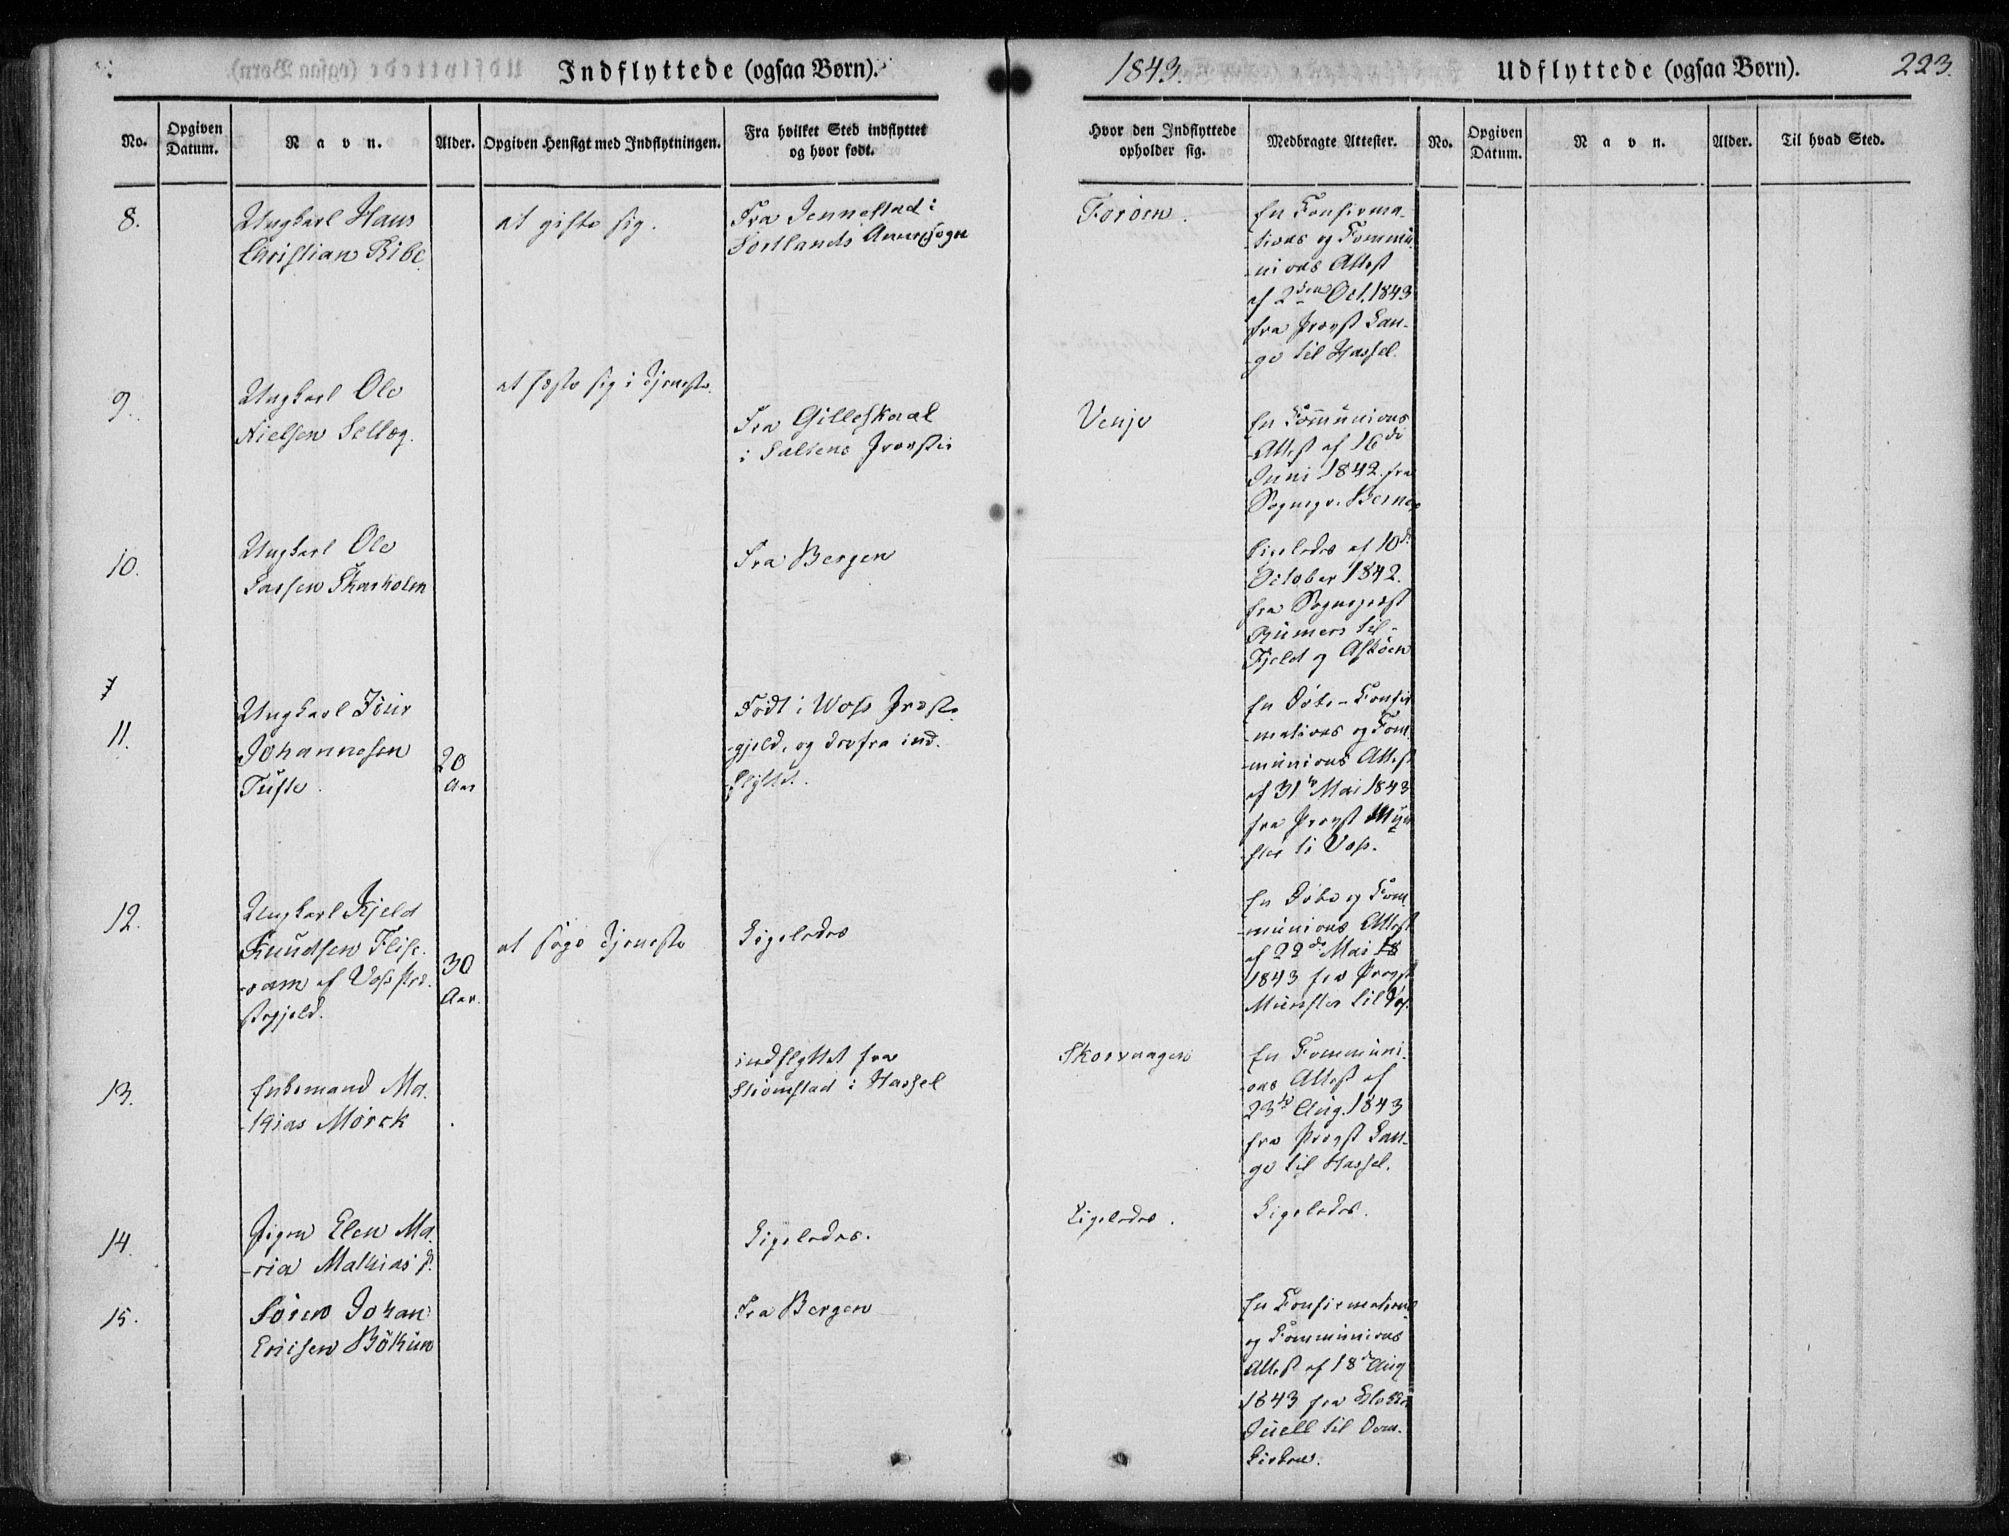 Indflyttede (ogsaa Børn).
1843.
Udflyttede (ogsaa Børn).
223.
No.
Opgiven Datum.
Navn.
Alder.
Opgiven Hensigt med Indflytningen.
Fra hvilket Sted indflyttet
og hvor født.
Hvor den Indflyttede
opholder sig.
Medbragte Attester.
No.
Opgiven Datum.
Navn.
Alder.
Til hvad Sted.
8.
Ungkarl Hans
Christian Ribe
at gifte sig.
Fra Jennestad i
Sortlands Annexsogn
Forøen.
En Confirma-
tions og Commu-
nions Attest
af 2den Oct. 1843
fra Provst Lan-
ge til Hassel.
9.
Ungkarl Ole
Nielsen Selleg.
at fæste sig i Tjeneste.
Fra Gilleskaal
i Saltens Provstie
Venje
En Communions
Attest af 16de
Juni 1842 fra
Sognepr.
10.
Ungkarl Ole
Larsen Skarholm
Fra Bergen
Ligeledes af 10de
October 1842.
fra Sognepræst
til
Fjeld og Askøen
11.
Ungkarl
Johannesen
Tufte.
20
Aar
Født i Woss Præste-
gjeld, og derfra ind-
flyttet.
En Døbe- Confir-
mations og Com-
munions Attest
af 31te Mai 1843
fra Provst Mün-
ster til Voss.
12.
Ungkarl Kjeld
Knudsen Flise-
ram af Voss Præ-
stegjeld.
30
Aar.
at søge Tjeneste
Ligeledes
En Døbe og Com-
munions Attest
af 22de Mai 18
1843 fra Provst
Münster til Vos.
13.
Enkemand Ma-
thias Mörck
indflyttet fra
Strømstad i Hassel
Skorvaagen
En Communi-
ons Attest af
23de Aug. 1843
fra Provst Lan-
ge til Hassel.
14.
Pigen Elen Ma-
ria Mathias d.
Ligeledes.
Ligeledes.
Ligeledes.
15.
Sören Johan
Ericsen Böküm
Fra Bergen
En Confirmations
og Communions
Attest af 18de Aug
1843 fra
Juell til Dom-
kirken.